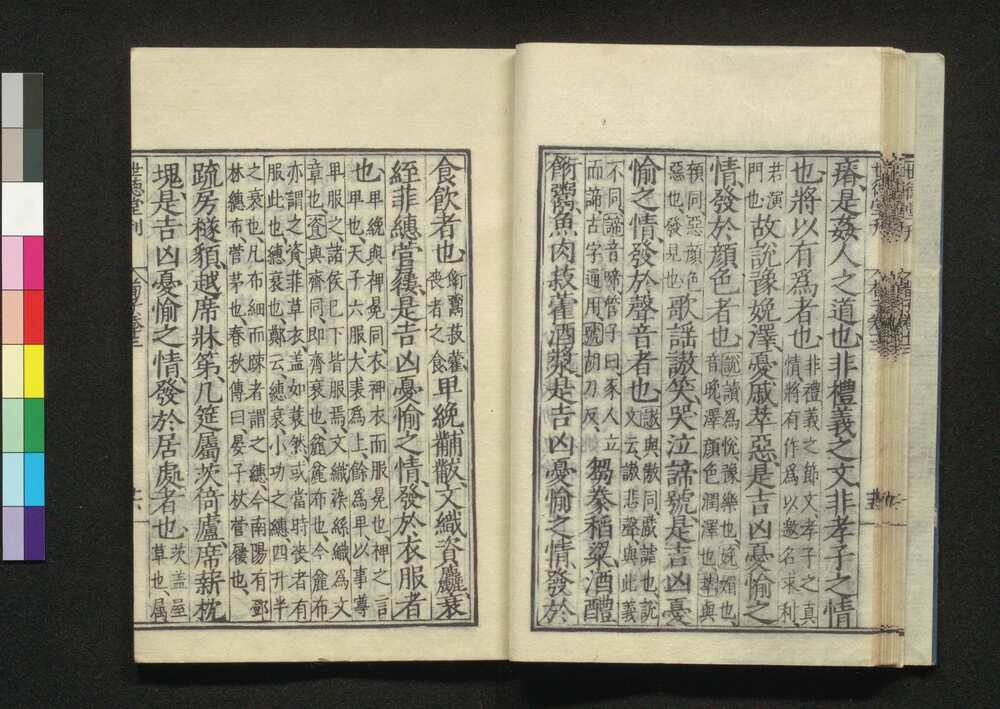 瘠、是姦人之道也、非禮義之文、非孝子之情
也、將以有爲者也、非禮義之節文孝子之眞情、將有作爲以邀名求利
若演門也、故說豫娩澤、憂戚萃惡、是吉凶憂愉之
情、發於顏色者也、說讀爲悅豫樂也、娩媚也、音晚、澤顏色潤澤也、萃與
顇同、惡顏色惡也、發見也、歌謠謸笑、哭泣諦號、是吉凶憂
愉之情、發於聲音者也、謸與敖同、戲謔也、說文云、謸悲聲、與此義
不同、諦音啼、管子曰、豕人立而諦、古字通用、號胡刀反、芻豢稻粱酒醴
餰鬻、魚肉菽藿酒漿、是吉凶憂愉之情、發於
食飲者也、餰鬻菽藿、喪者之食、卑絻黼黻、文織資麤、衰
絰菲繐菅屨、是吉凶憂愉之情、發於衣服者
也、卑絻與裨冕同、衣裨衣而服冕也、裨之言卑也、天子六服、大裘爲上、餘爲卑、以事尊
卑服之、諸侯已下皆服焉、文織染絲織爲文章也、資與齊同、即齊衰也、麤麤布也、今麤布
亦謂之資、菲草衣、蓋如蓑然、或當時喪者有服此也、繐衰也、鄭云、繐衰小功之繐、四升半
之衰也、凡布細而疎者謂之繐、今南陽有鄧林繐布、菅茅也、春秋傳曰、晏子杖菅屨也、
疏房檖䫉、越席牀笫、几筵屬茨、倚廬席薪枕
塊、是吉凶憂愉之情、發於居處者也、茨蓋屋草也、屬
世德堂刊